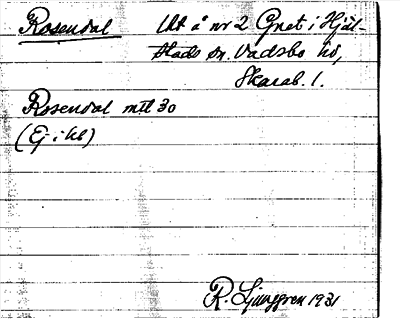 Rosendal Utt å nr 2 Gnet i Hjäl-
stads sn. Vadsbo hd,
Skarab. l.
Rosendal mtl 30
(Ej i hb)
R. Ljunggren 1931